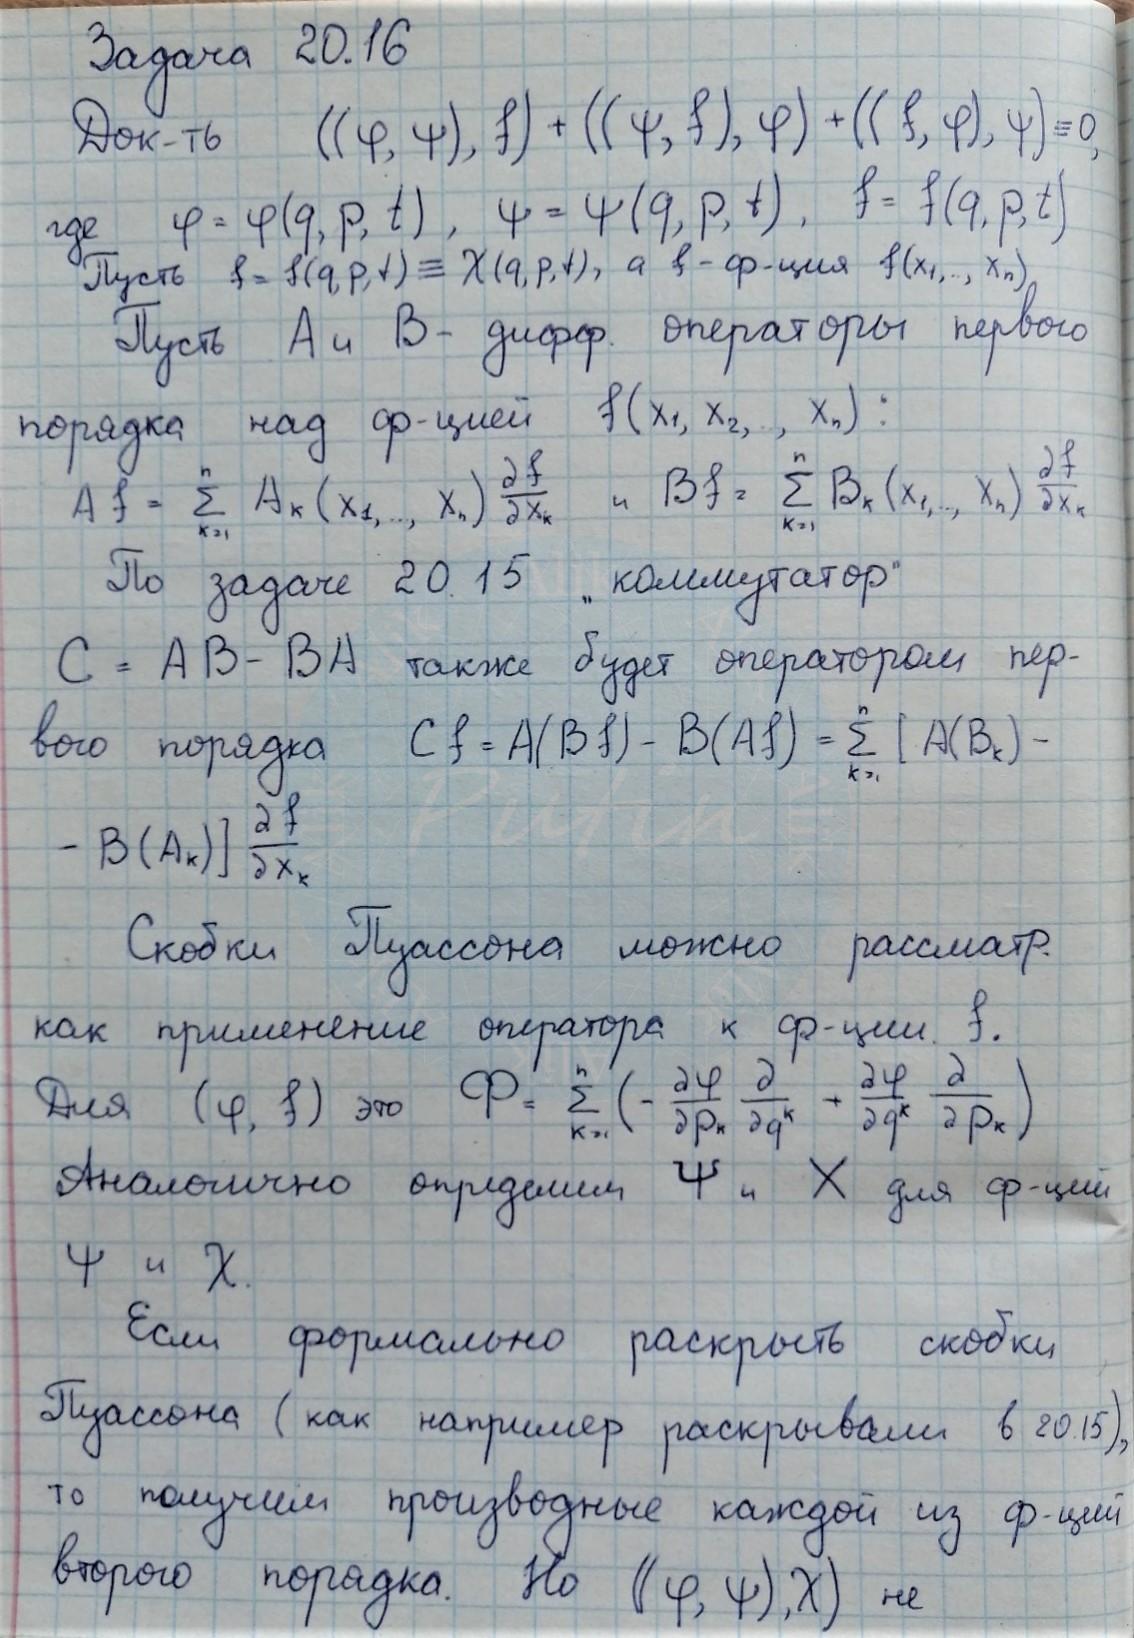 Задача 20.16
Док-ть ((φ, ψ), f) + ((ψ, f), φ) + ((f, φ), ψ) ≡ 0,
где φ = φ(q, p, t), ψ = ψ(q, p, t), f = f(q, p, t)
Пусть f = f(q, p, t) ≡ χ(q, p, t), а f - ф-ция f(x₁, .., xₙ)
Пусть A и B - дифф. операторы первого
порядка над ф-цией f(x₁, x₂, .., xₙ):
A f = Σₖ₌₁ⁿ Aₖ(x₁, .., xₙ) ∂f/∂xₖ и B f = Σₖ₌₁ⁿ Bₖ(x₁, .., xₙ) ∂f/∂xₖ
По задаче 20.15 „коммутатор"
C = AB - BA также будет оператором пер-
вого порядка C f = A(B f) - B(A f) = Σₖ₌₁ⁿ [A(Bₖ) -
- B(Aₖ)] ∂f/∂xₖ
Скобки Пуассона можно рассматр.
как применение оператора к ф-ции f.
Для (φ, f) это Φ = Σₖ₌₁ⁿ (- ∂φ/∂pₖ ∂/∂qᵏ + ∂φ/∂qᵏ ∂/∂pₖ)
Аналогично определим Ψ и X для ф-ций
ψ и χ.
Если формально раскрыть скобки
Пуассона (как например раскрывали в 20.15),
то получим производные каждой из ф-ций
второго порядка. Но ((φ, ψ), χ) не